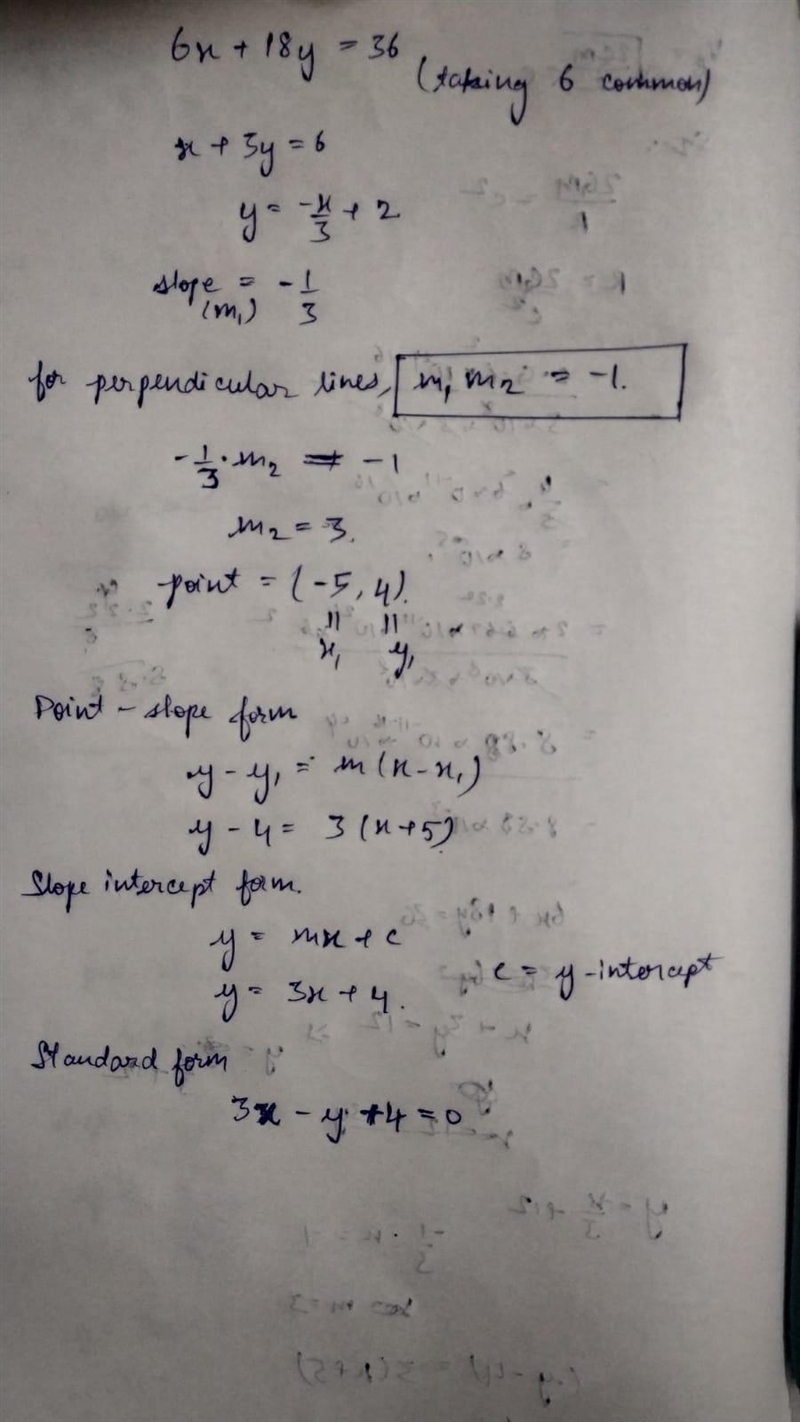 6x + 18y = 36
(taking 6 common)
x + 3y = 6
y = -x/3 + 2
slope = -1/3
(m₁)
for perpendicular lines, m₁ m₂ = -1.
-1/3 · m₂ = -1
m₂ = 3.
point = (-5, 4).
" "
x₁ y₁
Point - slope form
y - y₁ = m(x - x₁)
y - 4 = 3(x+5)
Slope intercept form.
y = mx + c
c = y-intercept
y = 3x + 4.
Standard form
3x - y + 4 = 0